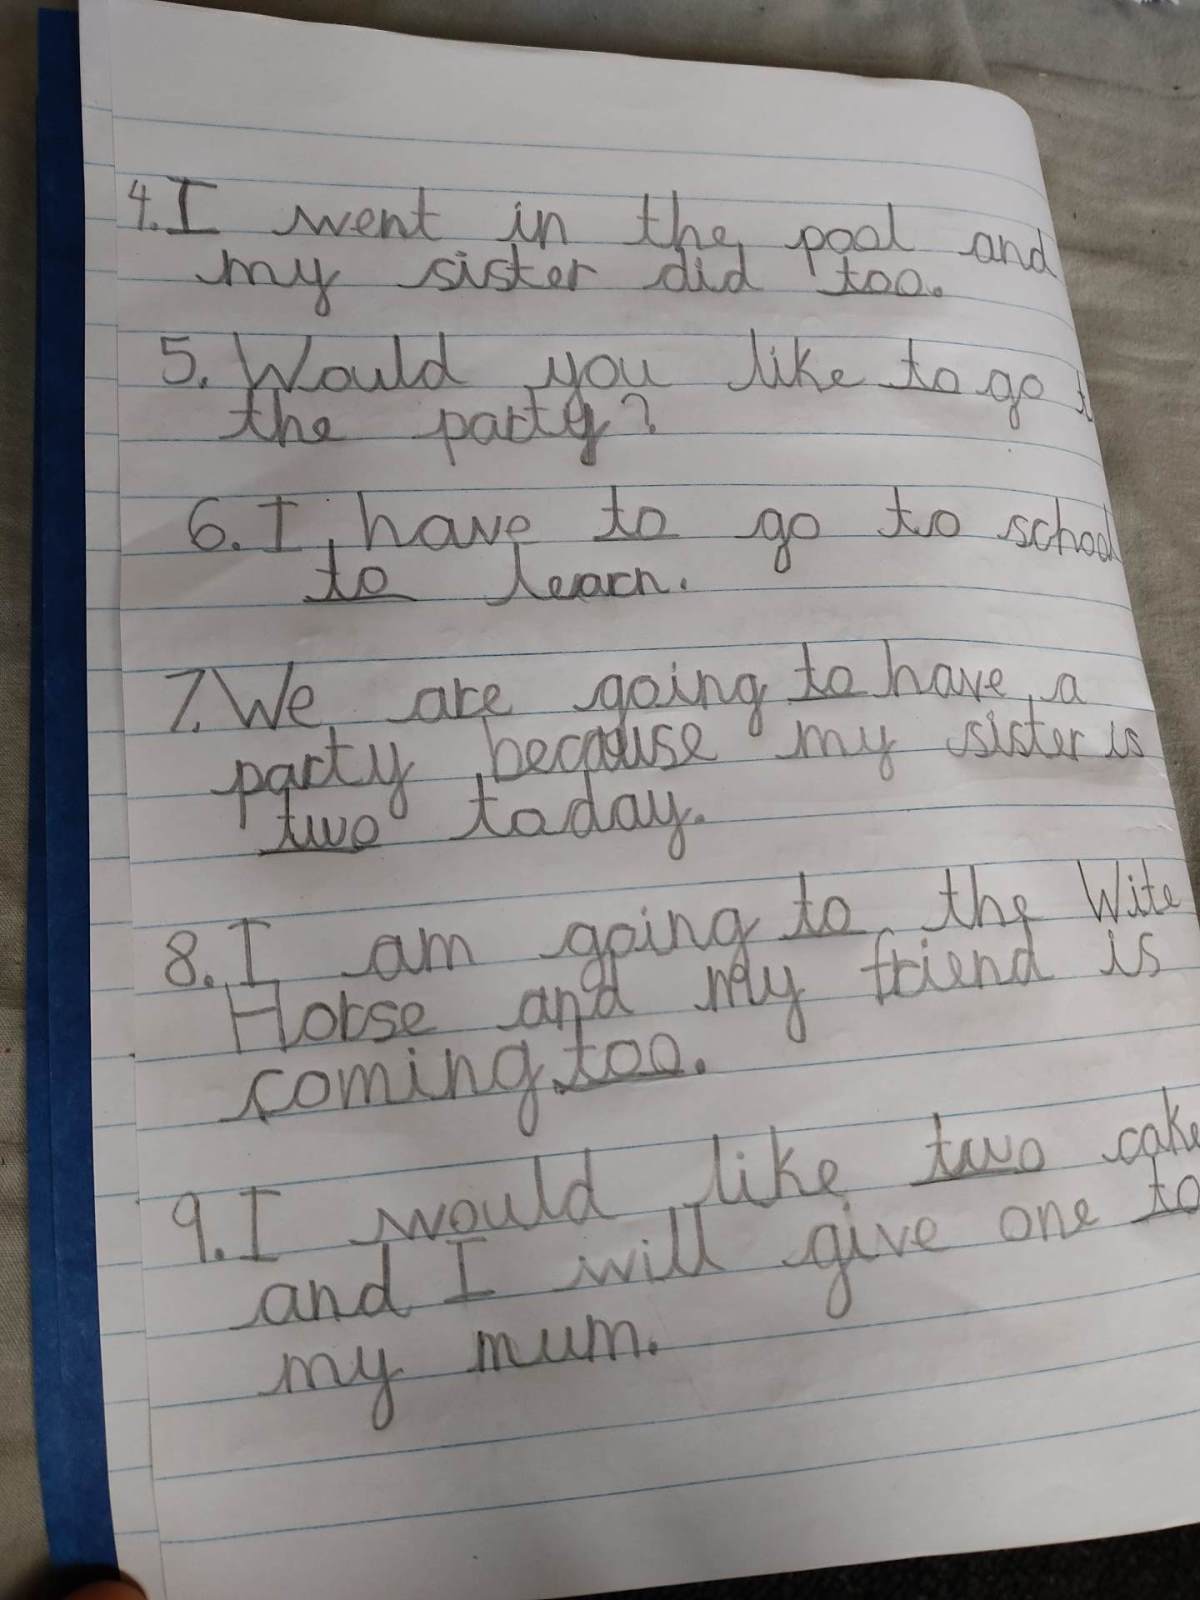 4. I went in the pool and
my sister did too.
5. Would you like to go t
the party?
6. I have to go to school
to learn.
7. We are going to have a
party because my sister is
two today.
8. I am going to the Wite
Horse and my friend is
coming too.
9. I would like two cake
and I will give one to
my mum.